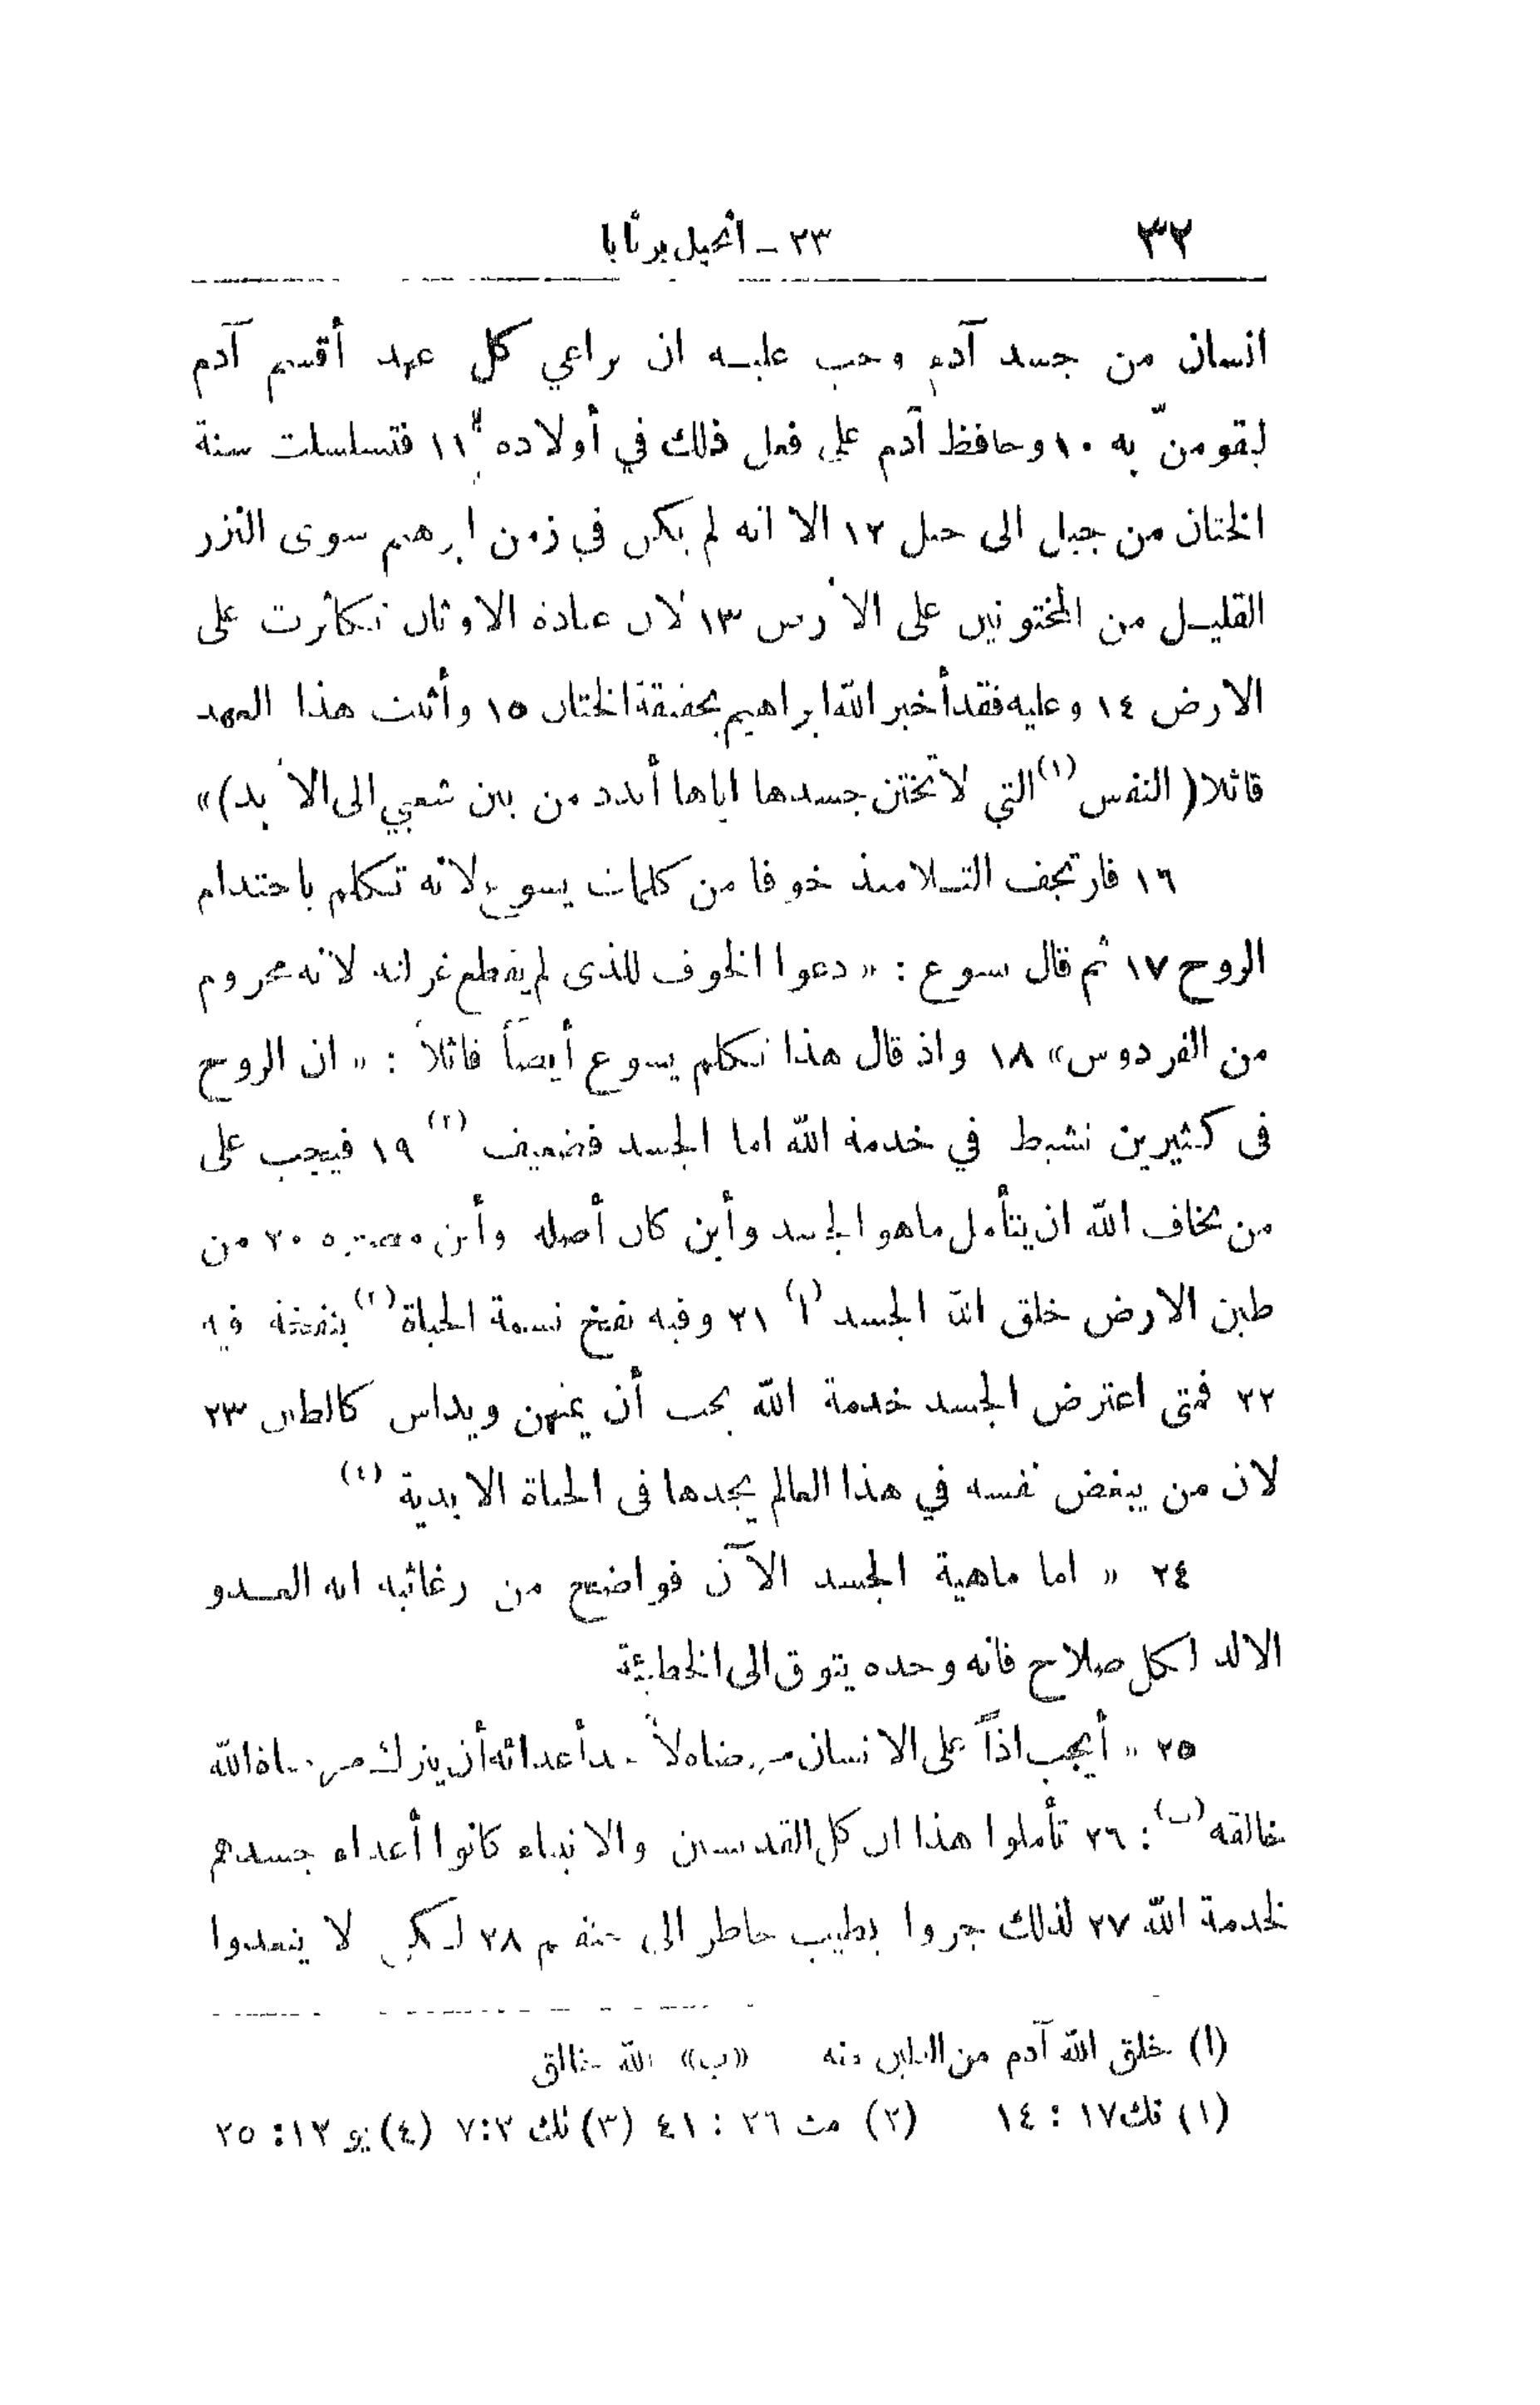 ٣٢
٢٣ - انجيل برنابا
انسان من جسد آدم وجب عليـه ان يراعي كل عهد أقسم آدم
ليقومنّ به ١٠ وحافظ آدم على فعل ذلك في أولاده ١١ فتسلسلت سنة
الختان من جيل الى جيل ١٢ الا انه لم يكن في زمن ابرهيم سوى النزر
القليـل من المختونين على الأرض ١٣ لأن عبادة الاوثان تكاثرت على
الارض ١٤ وعليه فقد أخبر الله ابراهيم بحقيقة الختان ١٥ وأثبت هذا العهد
قائلا ( النفس (١) التي لا تختن جسدها اياها أبدد من بين شعبي الى الأبد ) »
١٦ فارتجف التـلاميذ خوفا من كلمات يسوع لانه تكلم باحتدام
الروح ١٧ ثم قال يسوع : « دعوا الخوف للذى لم يقطع غرلته لانه محروم
من الفردوس » ١٨ واذ قال هذا تكلم يسوع أيضاً قائلاً : « ان الروح
فى كثيرين نشيط في خدمة الله اما الجسد فضعيف (٢) ١٩ فيجب على
من يخاف الله ان يتأمل ماهو الجسد وأين كان أصله وأين مصيره ٢٠ من
طين الارض خلق الله الجسد (ا) ٢١ وفيه نفخ نسمة الحياة (٣) بنفخة فيه
٢٢ فمتى اعترض الجسد خدمة الله يجب أن يمتهن ويداس كالطين ٢٣
لان من يبغض نفسه في هذا العالم يجدها فى الحياة الابدية (٤)
٢٤ « اما ماهية الجسد الآن فواضح من رغائبه انه العـدو
الالد لكل صلاح فانه وحده يتوق الى الخطيئة
٢٥ « أيجب اذاً على الانسان مرضاة لأحد أعدائه أن يترك مرضاة الله
خالقه (ب) : ٢٦ تأملوا هذا ان كل القديسين والانبياء كانوا أعداء جسدهم
لخدمة الله ٢٧ لذلك جروا بطيب خاطر الى حتفهم ٢٨ لـكي لا يتعدوا
(ا) خلق الله آدم من الطين منه «ب» الله خالق
(١) تك ١٧ : ١٤ (٢) مت ٢٦ : ٤١ (٣) تك ٢:٧ (٤) يو ١٢ : ٢٥